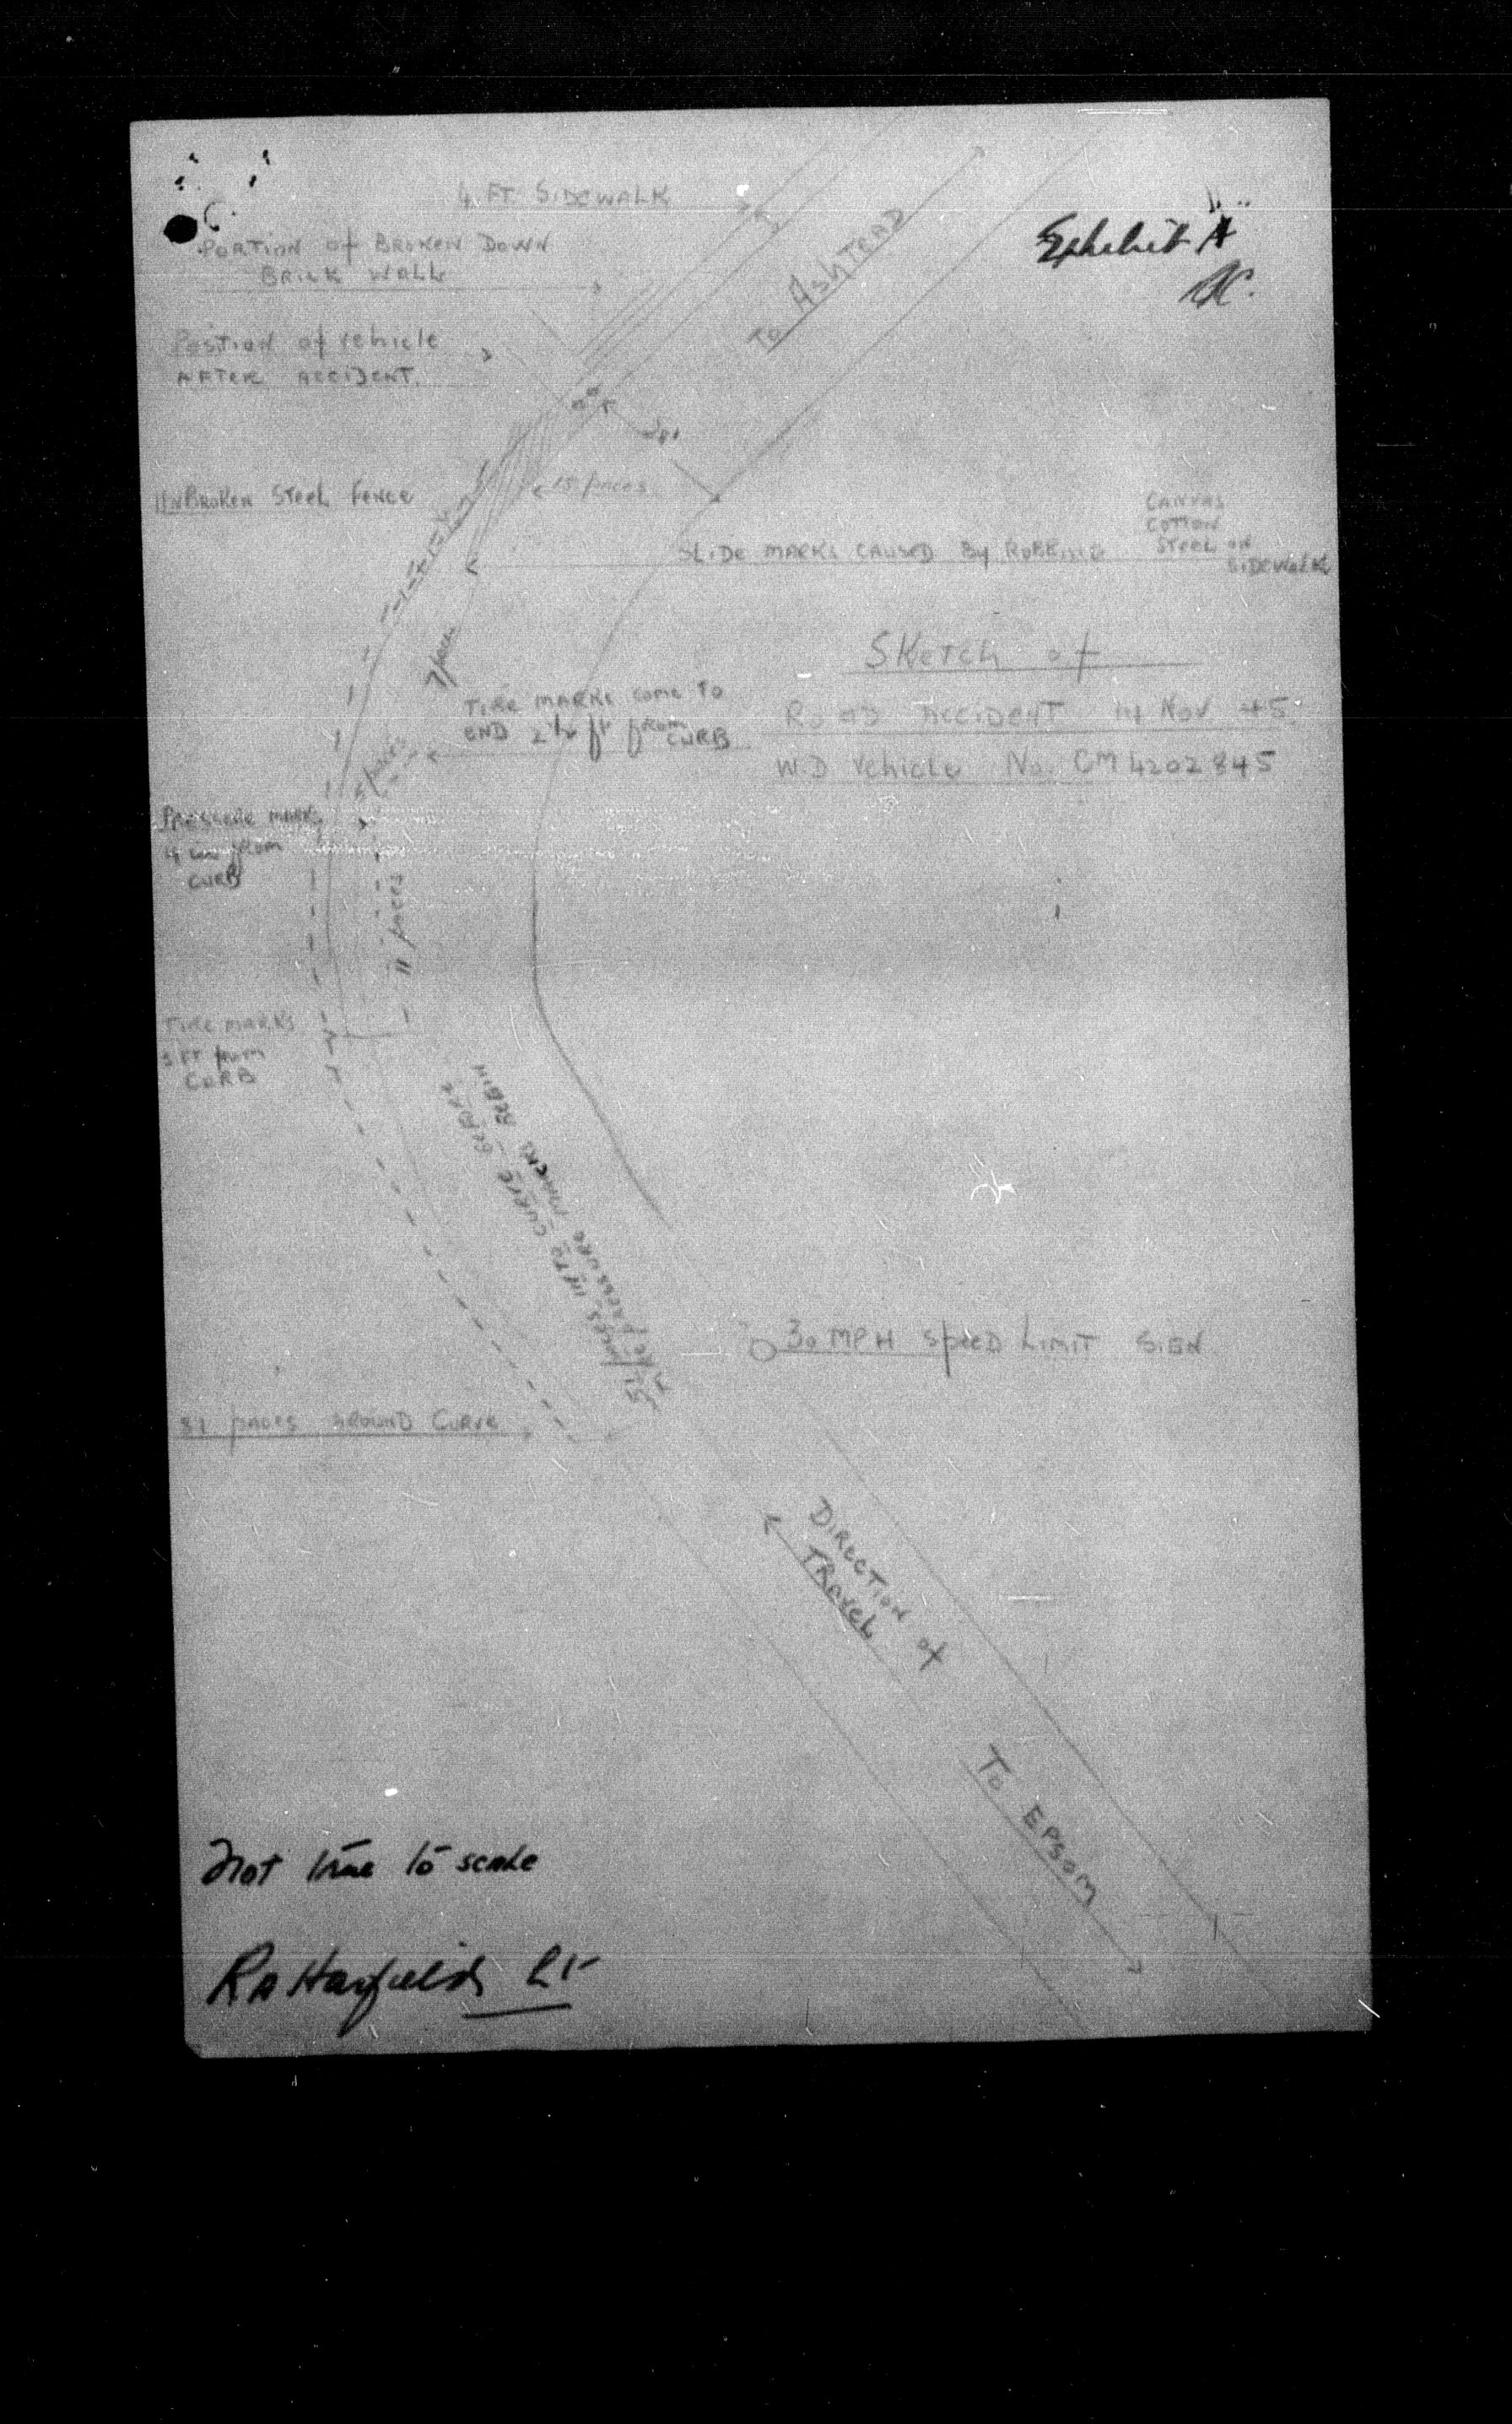 4 FT SIDEWALK
Exhibit A
PORTION of BROKEN DOWN
BRICK WALL
To ASHTEAD
Position of vehicle
AFTER ACCIDENT.
UNBROKEN STEEL FENCE
15 paces
SLIDE MARKS CAUSED By RUBBING
CANVAS
COTTON
STEEL on
SIDEWALK
7 paces
SKETCH of
ROAD ACCIDENT 14 NOV 45.
W.D Vehicle No. CM4202845
TIRE MARKS come TO
END 2 1/2 ft from
CURB
paces
PRESSURE MARKS
from
CURB
11 paces
TIRE MARKS
FT from
CURB
paces INTO CURVE BEFORE
PRESSURE MARKS BEGIN
30 MPH SPEED LIMIT SIGN
81 paces AROUND CURVE
DIRECTION of
TRAVEL
To EPSOM
Not true to scale
Lt